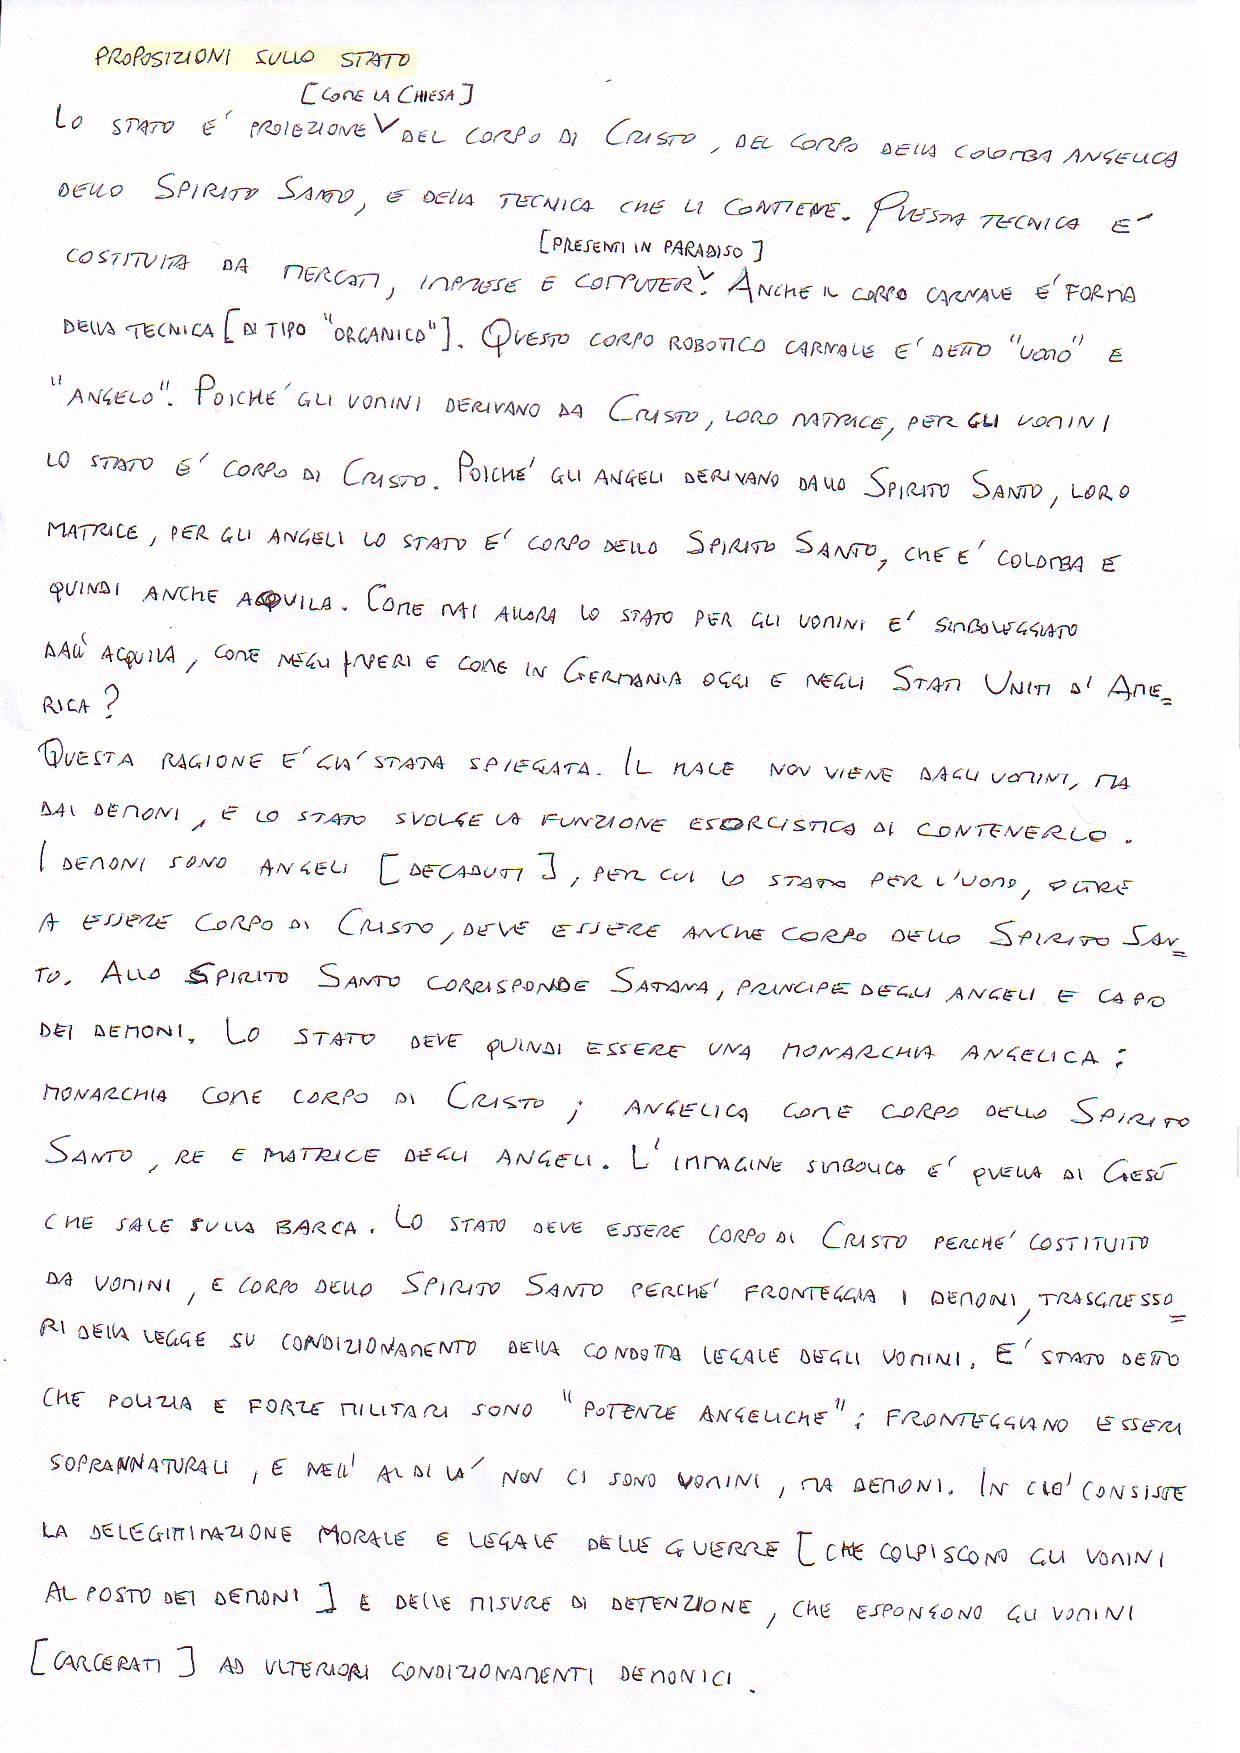 PROPOSIZIONI SULLO STATO
[COME LA CHIESA]
LO STATO E' PROIEZIONE DEL CORPO DI CRISTO, DEL CORPO DELLA COLOMBA ANGELICA
DELLO SPIRITO SANTO, E DELLA TECNICA CHE LI CONTIENE. QUESTA TECNICA E'
[PRESENTI IN PARADISO]
COSTITUITA DA MERCATI, IMPRESE E COMPUTER. ANCHE IL CORPO CARNALE E' FORMA
DELLA TECNICA [DI TIPO "ORGANICO"]. QUESTO CORPO ROBOTICO CARNALE E' DETTO "UOMO" E
"ANGELO". POICHE' GLI UOMINI DERIVANO DA CRISTO, LORO MATRICE, PER GLI UOMINI
LO STATO E' CORPO DI CRISTO. POICHE' GLI ANGELI DERIVANO DALLO SPIRITO SANTO, LORO
MATRICE, PER GLI ANGELI LO STATO E' CORPO DELLO SPIRITO SANTO, CHE E' COLOMBA E
QUINDI ANCHE AQUILA. COME MAI ALLORA LO STATO PER GLI UOMINI E' SIMBOLEGGIATO
DALL'ACQUILA, COME NEGLI IMPERI E COME IN GERMANIA OGGI E NEGLI STATI UNITI D'AME=
RICA?
QUESTA RAGIONE E' GIA' STATA SPIEGATA. IL MALE NON VIENE DAGLI UOMINI, MA
DAI DEMONI, E LO STATO SVOLGE LA FUNZIONE ESORCISTICA DI CONTENERLO.
I DEMONI SONO ANGELI [DECADUTI], PER CUI LO STATO PER L'UOMO, OLTRE
A ESSERE CORPO DI CRISTO, DEVE ESSERE ANCHE CORPO DELLO SPIRITO SAN=
TO. ALLO SPIRITO SANTO CORRISPONDE SATANA, PRINCIPE DEGLI ANGELI E CAPO
DEI DEMONI. LO STATO DEVE QUINDI ESSERE UNA MONARCHIA ANGELICA:
MONARCHIA COME CORPO DI CRISTO; ANGELICA COME CORPO DELLO SPIRITO
SANTO, RE E MATRICE DEGLI ANGELI. L'IMMAGINE SIMBOLICA E' QUELLA DI GESÙ
CHE SALE SULLA BARCA. LO STATO DEVE ESSERE CORPO DI CRISTO PERCHE' COSTITUITO
DA UOMINI, E CORPO DELLO SPIRITO SANTO PERCHE' FRONTEGGIA I DEMONI, TRASGRESSO=
RI DELLA LEGGE SU CONDIZIONAMENTO DELLA CONDOTTA LEGALE DEGLI UOMINI. E' STATO DETTO
CHE POLIZIA E FORZE MILITARI SONO "POTENZE ANGELICHE": FRONTEGGIANO ESSERI
SOPRANNATURALI, E NELL'AL DI LA' NON CI SONO UOMINI, MA DEMONI. IN CIO' CONSISTE
LA DELEGITTIMAZIONE MORALE E LEGALE DELLE GUERRE [CHE COLPISCONO GLI UOMINI
AL POSTO DEI DEMONI] E DELLE MISURE DI DETENZIONE, CHE ESPONGONO GLI UOMINI
[CARCERATI] AD ULTERIORI CONDIZIONAMENTI DEMONICI.